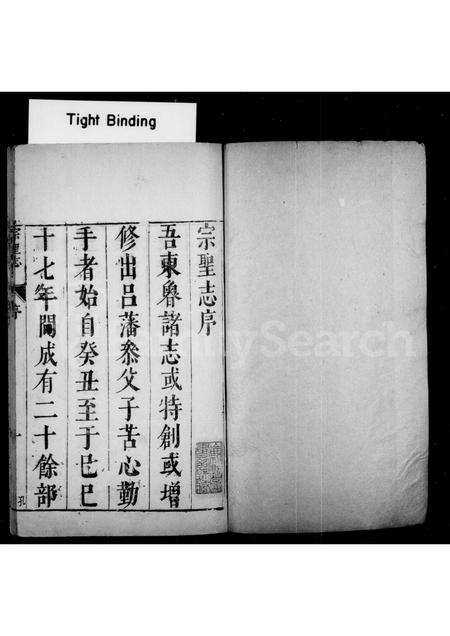 Tight Binding
宗聖志序
吾東魯諸志或特創或增
修出呂藩叅父子苦心勤
手者始自癸丑至于巳巳
十七年間成有二十餘部
宗聖志
序
一
孔